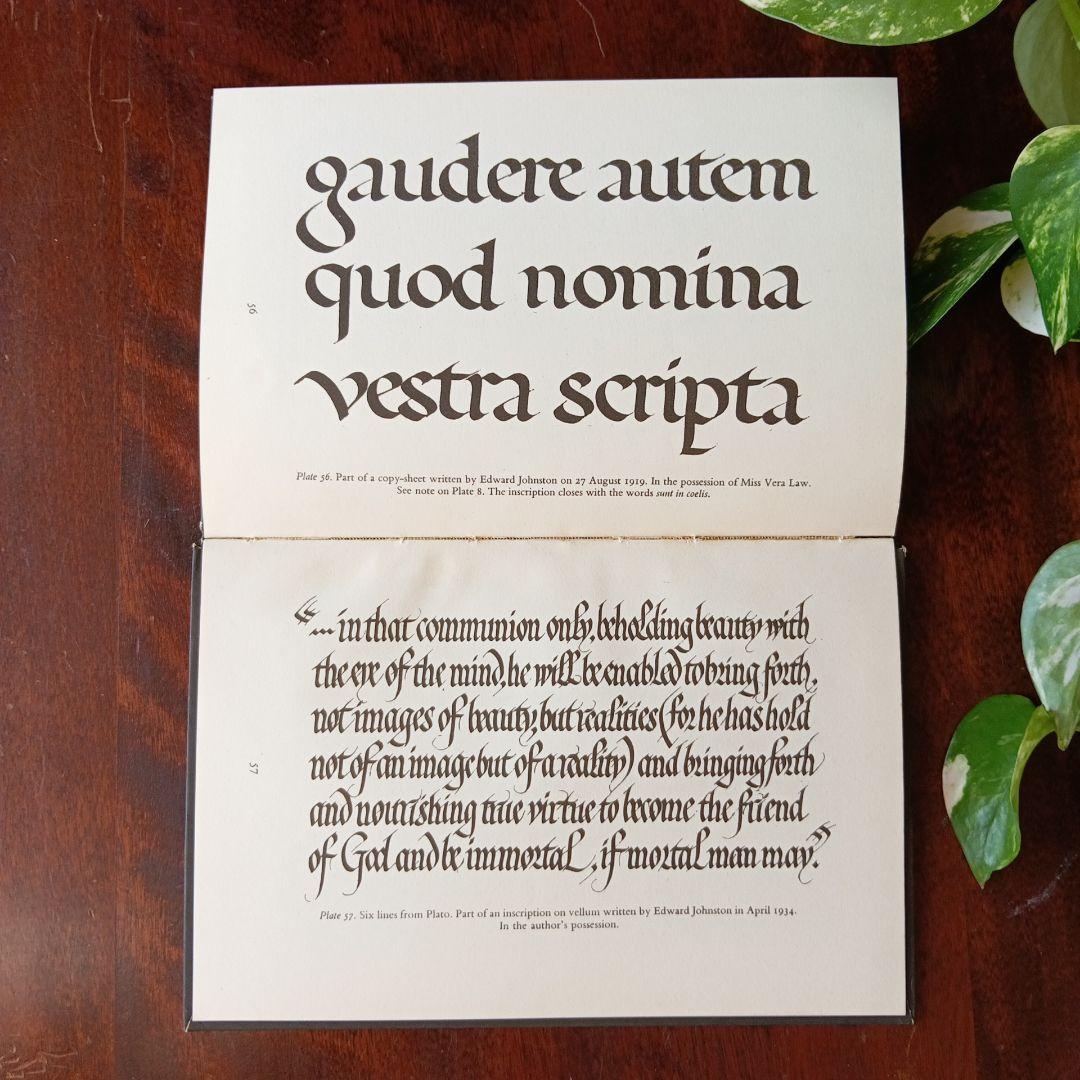 gaudere autem
quod nomina
vestra scripta
56
Plate 56. Part of a copy-sheet written by Edward Johnston on 27 August 1919. In the possession of Miss Vera Law.
See note on Plate 8. The inscription closes with the words sunt in coelis.
“... in that communion only, beholding beauty with
the eye of the mind, he will be enabled to bring forth,
not images of beauty, but realities (for he has hold
not of an image but of a reality) and bringing forth
and nourishing true virtue to become the friend
of God and be immortal, if mortal man may.”
57
Plate 57. Six lines from Plato. Part of an inscription on vellum written by Edward Johnston in April 1934.
In the author's possession.